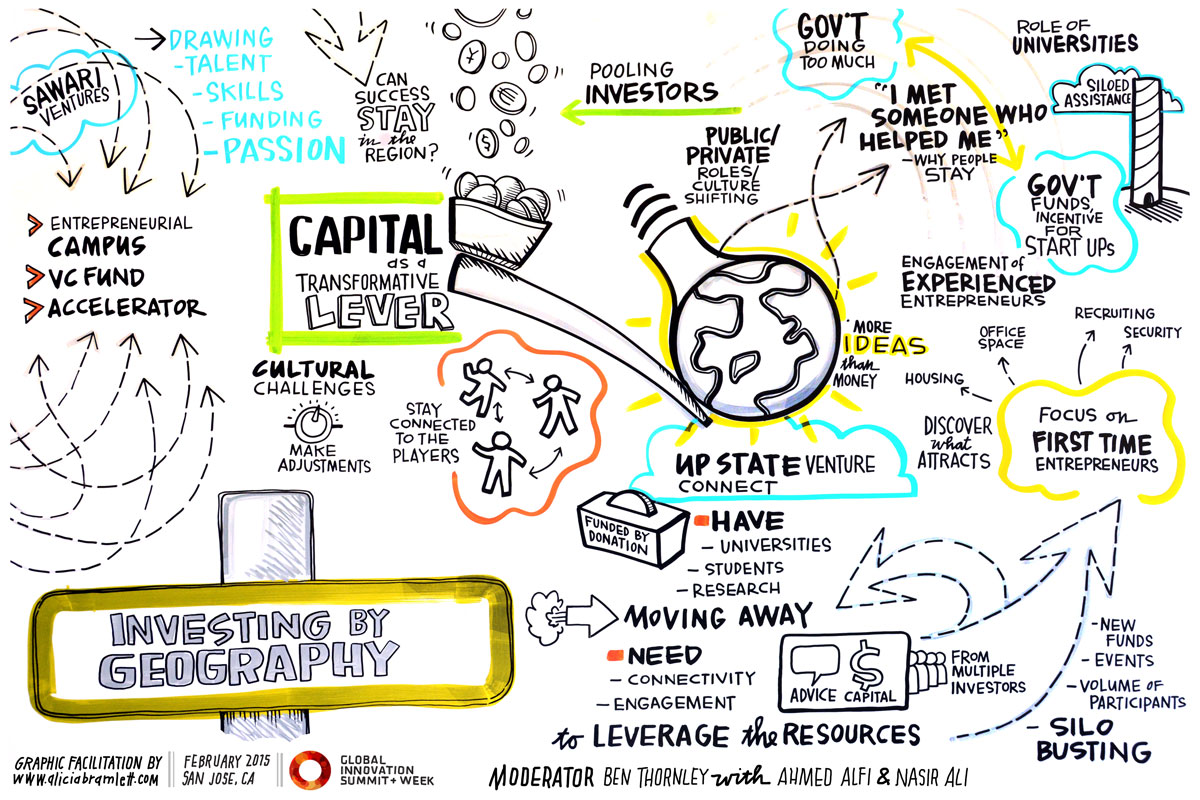 SAWARI
VENTURES
DRAWING
-TALENT
-SKILLS
-FUNDING
-PASSION
CAN
SUCCESS
STAY
in the
REGION?
ENTREPRENEURIAL
CAMPUS
VC FUND
ACCELERATOR
CAPITAL
as a
TRANSFORMATIVE
LEVER
¥
€
$
CULTURAL
CHALLENGES
MAKE
ADJUSTMENTS
STAY
CONNECTED
TO THE
PLAYERS
POOLING
INVESTORS
PUBLIC/
PRIVATE
ROLES/
CULTURE
SHIFTING
GOV'T
DOING
TOO MUCH
"I MET
SOMEONE WHO
HELPED ME"
-WHY PEOPLE
STAY
ROLE OF
UNIVERSITIES
SILOED
ASSISTANCE
GOV'T
FUNDS,
INCENTIVE
FOR
START UPS
ENGAGEMENT of
EXPERIENCED
ENTREPRENEURS
MORE
IDEAS
than
MONEY
OFFICE
SPACE
RECRUITING
SECURITY
HOUSING
DISCOVER
what
ATTRACTS
FOCUS on
FIRST TIME
ENTREPRENEURS
UP STATE VENTURE
CONNECT
FUNDED BY
DONATION
HAVE
- UNIVERSITIES
- STUDENTS
- RESEARCH
MOVING AWAY
NEED
- CONNECTIVITY
- ENGAGEMENT
$
ADVICE CAPITAL
FROM
MULTIPLE
INVESTORS
to LEVERAGE the RESOURCES
-NEW
FUNDS
-EVENTS
-VOLUME OF
PARTICIPANTS
-SILO
BUSTING
INVESTING BY
GEOGRAPHY
GRAPHIC FACILITATION BY
www.aliciabramlett.com
FEBRUARY 2015
SAN JOSE, CA
GLOBAL
INNOVATION
SUMMIT + WEEK
MODERATOR BEN THORNLEY with AHMED ALFI & NASIR ALI